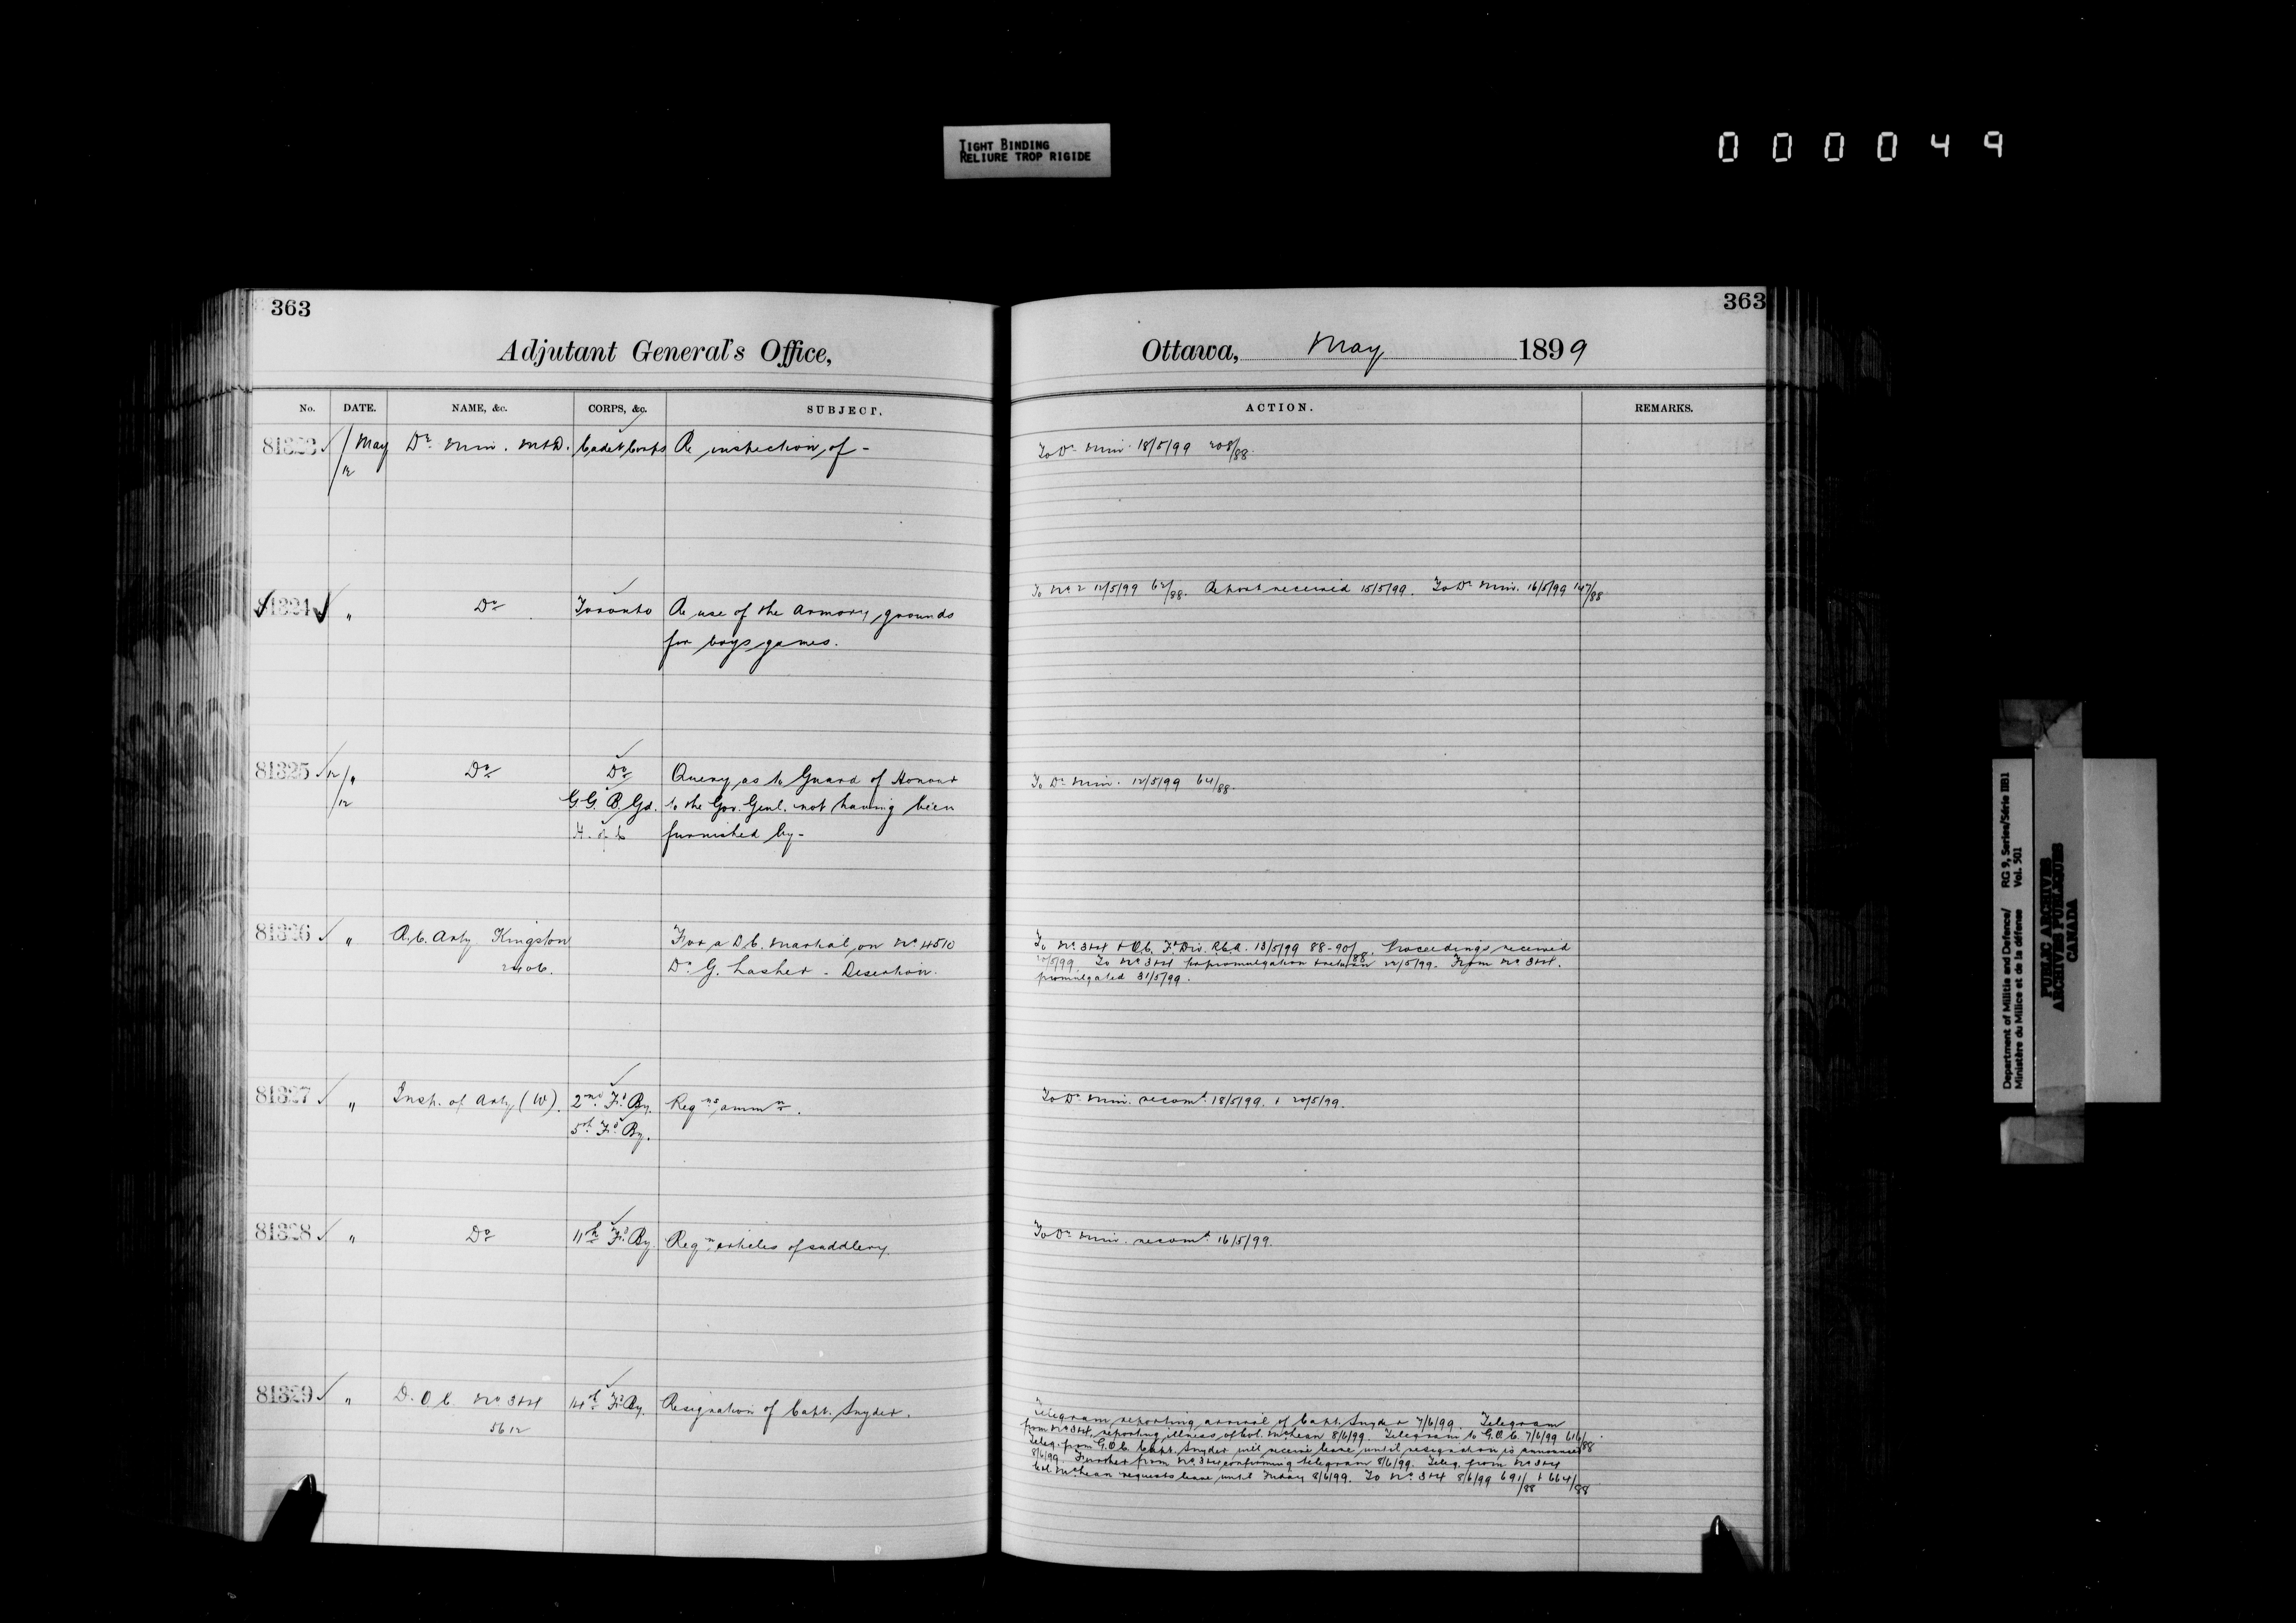 TIGHT BINDING
RELIURE TROP RIGIDE
000049
363
Adjutant General's Office,
No. DATE. NAME, &c. CORPS, &c. SUBJECT.
81323 May 12 Dr. Min. M&D. Cadet Corps Re inspection of -
81324 " Do Toronto Re use of the armory grounds
for boys games.
81325 12/12 " Do Do Query as to Guard of Honour
G.G. B. Gd. to the Gov. Genl. not having been
H. of C furnished by -
81326 " A.C. Arty Kingston For a D.C. martial on No. 4510
2406. Dr. G. Lasher - Desertion.
81327 " Insp. of Arty (W). 2nd Fd. By. Reqns ammn.
5th Fd. By.
81328 " Do 11th Fd. By. Reqn articles of saddlery.
81329 " D.O.C. No 3&4 14th Fd. By. Resignation of Capt. Snyder.
5612
363
Ottawa, May 1899
ACTION. REMARKS.
To Dr. Min. 18/5/99 208/88.
To No 2 12/5/99 62/88. Report received 15/5/99. To Dr. Min. 16/5/99 147/88
To Dr. Min. 12/5/99 64/88.
To No. 3&4 & O.C. Fd. Div. R.C.A. 13/5/99 88-90/88. Proceedings received
To No 3&4 for promulgation & return 22/5/99. From No 3&4.
promulgated 31/5/99.
To Dr. Min. recomd. 18/5/99. & 20/5/99.
To Dr. Min. recomd. 16/5/99.
Telegram reporting arrival of Capt. Snyder 7/6/99. Telegram
from No 3&4, reporting illness of Col. McLean 8/6/99. Telegram to G.O.C. 7/6/99 616/88.
Teleg. from G.O.C. Capt. Snyder will receive leave until resignation is announced
8/6/99. Further from No. 3&4 confirming telegram 8/6/99. Teleg. from No 3&4
Col. McLean requests leave until Friday 8/6/99. To No. 3&4 8/6/99 691/88 & 664/88
Department of Militia and Defence/ RG 9, Series/Série IIB1
Ministère du Milice et de la défense Vol. 501
PUBLIC ARCHIVES
ARCHIVES PUBLIQUES
CANADA